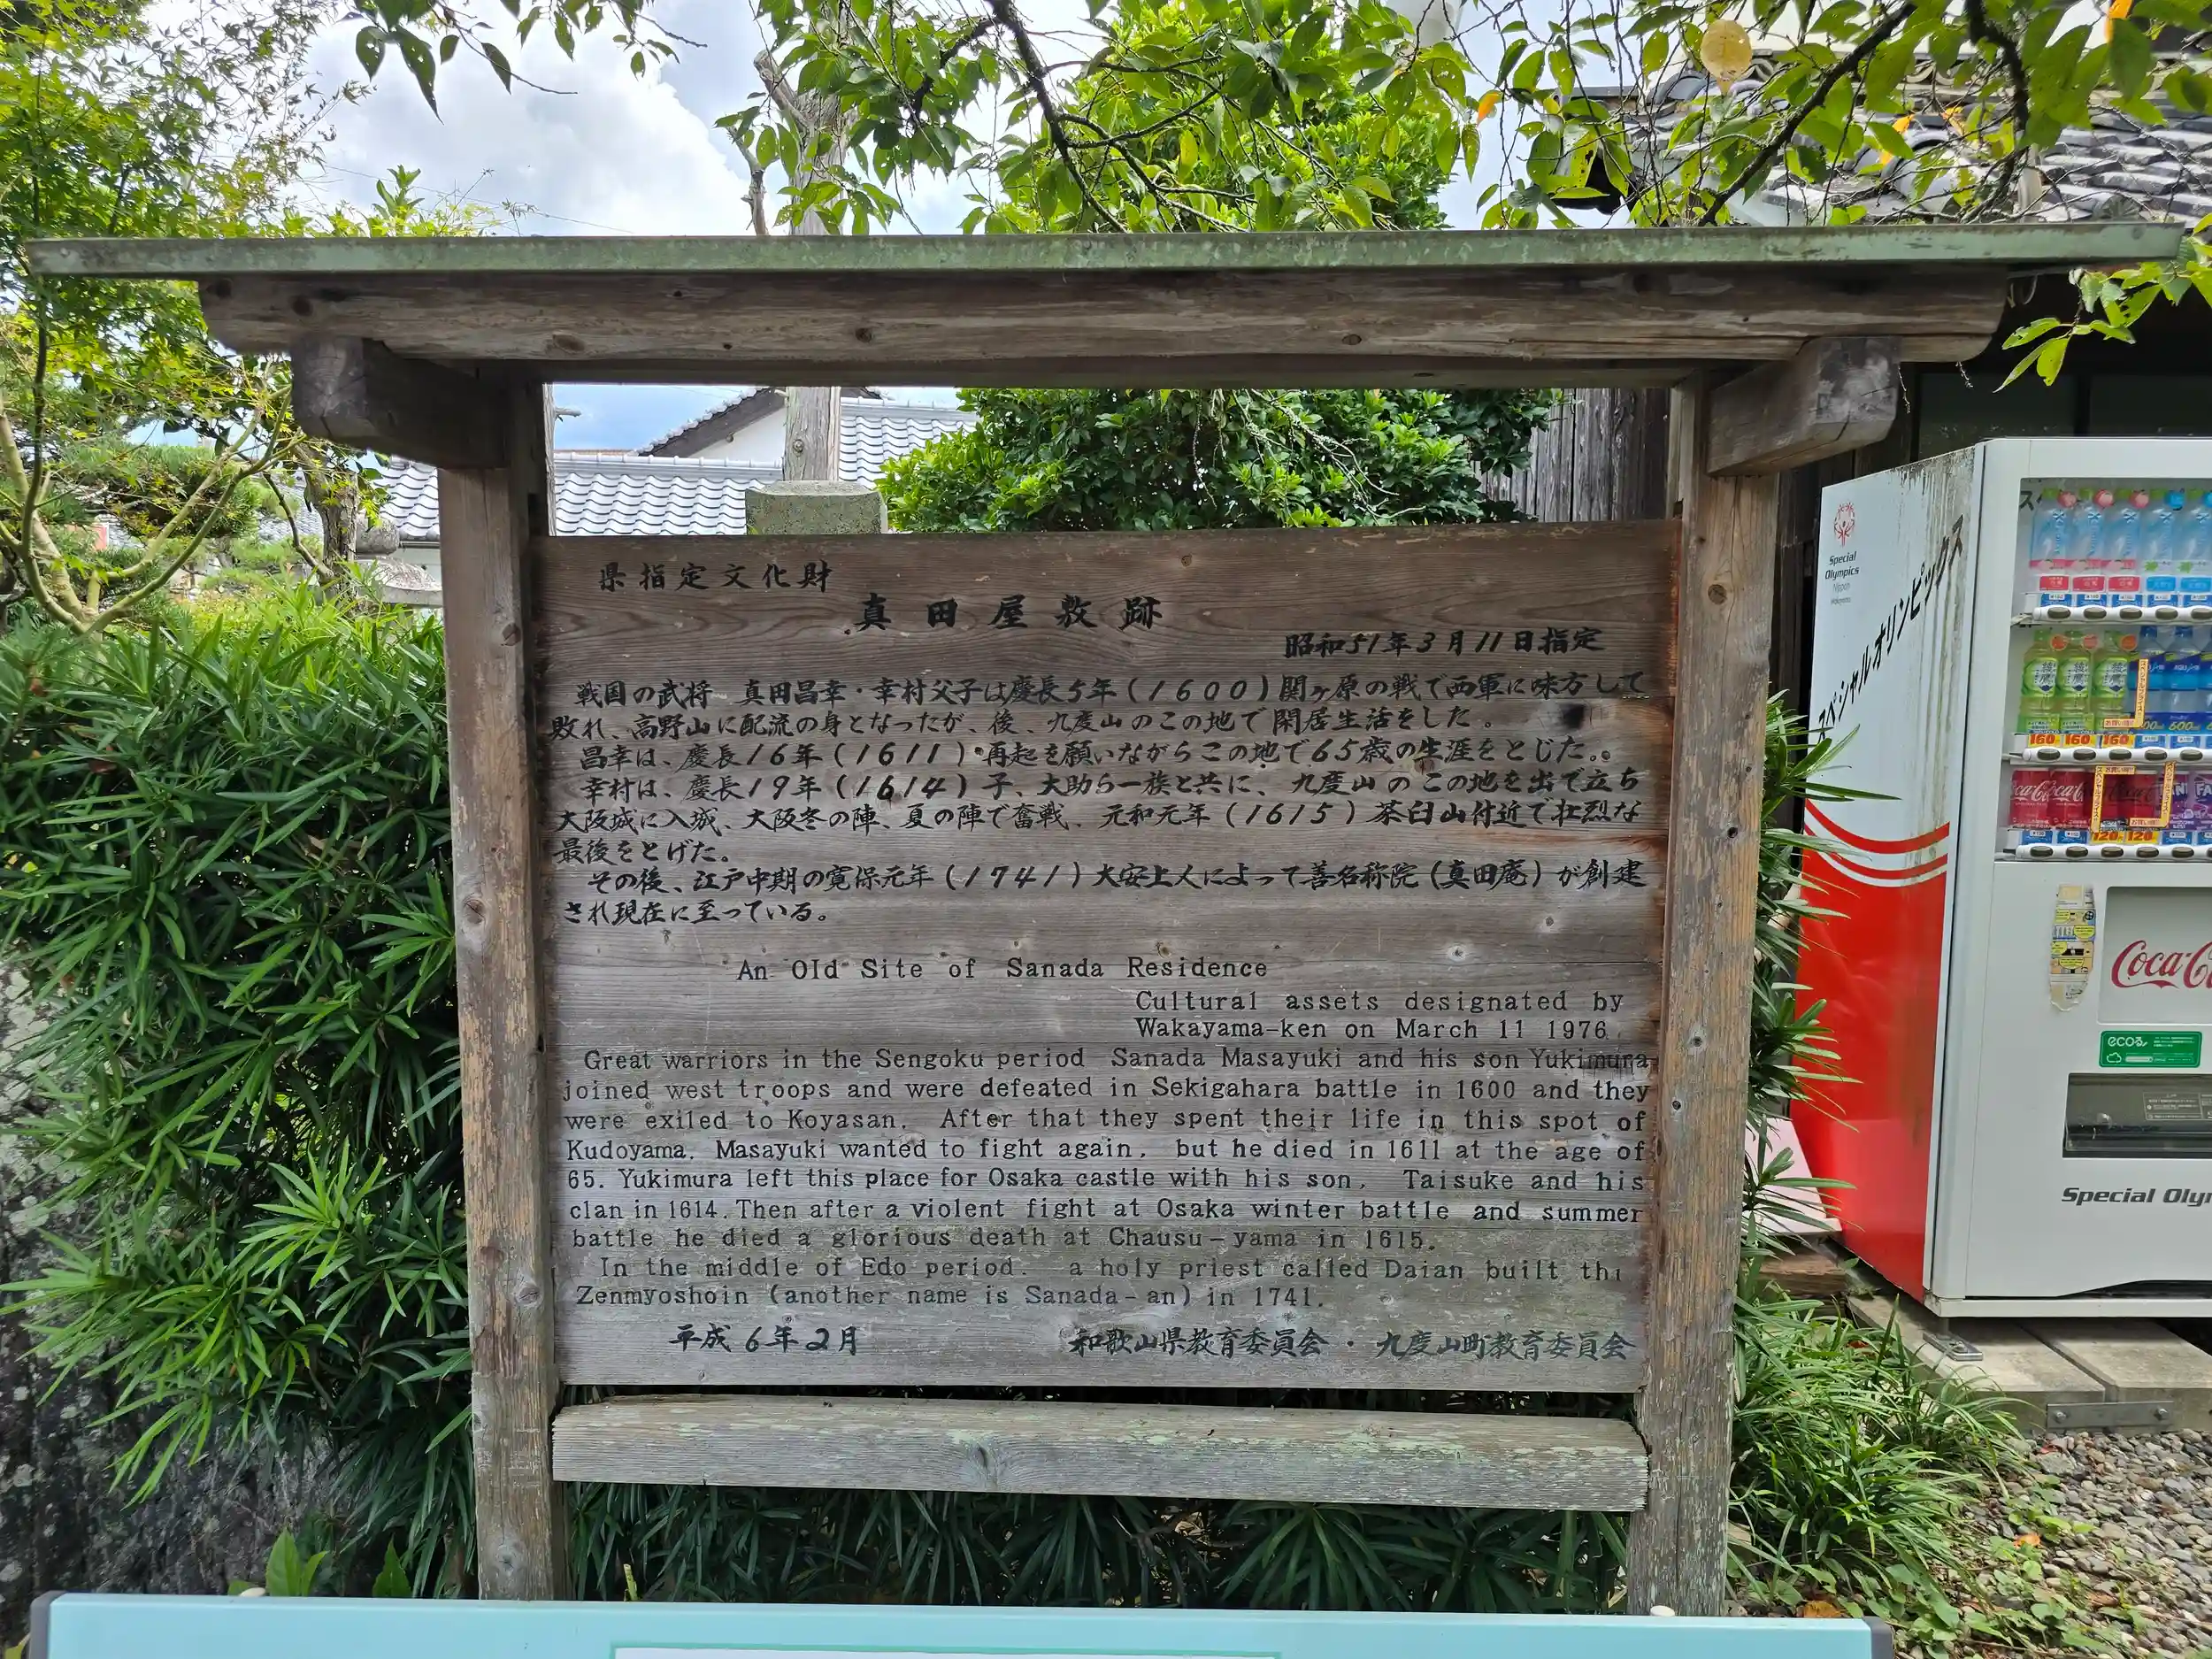 県指定文化財
真田屋敷跡
昭和51年3月11日指定
戦国の武将 真田昌幸・幸村父子は慶長5年(1600)関ヶ原の戦で西軍に味方して
敗れ、高野山に配流の身となったが、後、九度山のこの地で閑居生活をした。
昌幸は、慶長16年(1611)再起を願いながらこの地で65歳の生涯をとじた。
幸村は、慶長19年(1614)子、大助ら一族と共に、九度山のこの地を出て立ち
大阪城に入城、大阪冬の陣、夏の陣で奮戦、元和元年(1615)茶臼山付近で壮烈な
最後をとげた。
その後、江戸中期の寛保元年(1741)大安上人によって善名称院(真田庵)が創建
され現在に至っている。
An Old Site of Sanada Residence
Cultural assets designated by
Wakayama-ken on March 11 1976.
Great warriors in the Sengoku period Sanada Masayuki and his son Yukimura
joined west troops and were defeated in Sekigahara battle in 1600 and they
were exiled to Koyasan. After that they spent their life in this spot of
Kudoyama. Masayuki wanted to fight again, but he died in 1611 at the age of
65. Yukimura left this place for Osaka castle with his son, Taisuke and his
clan in 1614. Then after a violent fight at Osaka winter battle and summer
battle he died a glorious death at Chausu-yama in 1615.
In the middle of Edo period. a holy priest called Daian built
Zenmyoshoin (another name is Sanada-an) in 1741.
平成6年2月 和歌山県教育委員会・九度山町教育委員会
Special
Olympics
Nippon
スペシャルオリンピックス
ス
160 160 160
600
120 120
Coca-C
ecoる
Special Oly